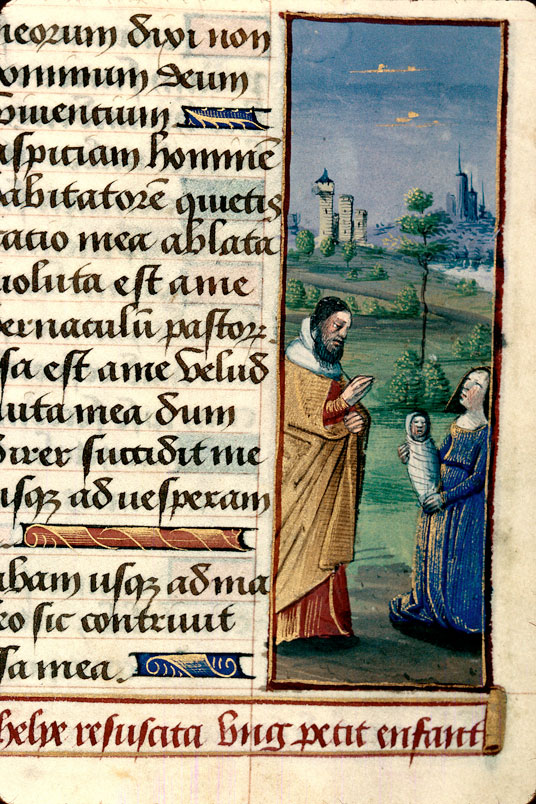 meorum dixi non
dominum deum
viventium
aspiciam hominē
habitatorē quietis
ratio mea ablata
uoluta est ame
bernaculū pastorꝝ
isa est ame velud
uita mea dum
direr succidit me
usqꝫ ad uesperam
abam usqꝫ ad ma
eo sic contriuit
sa mea.
helye resuscita vng petit enfant